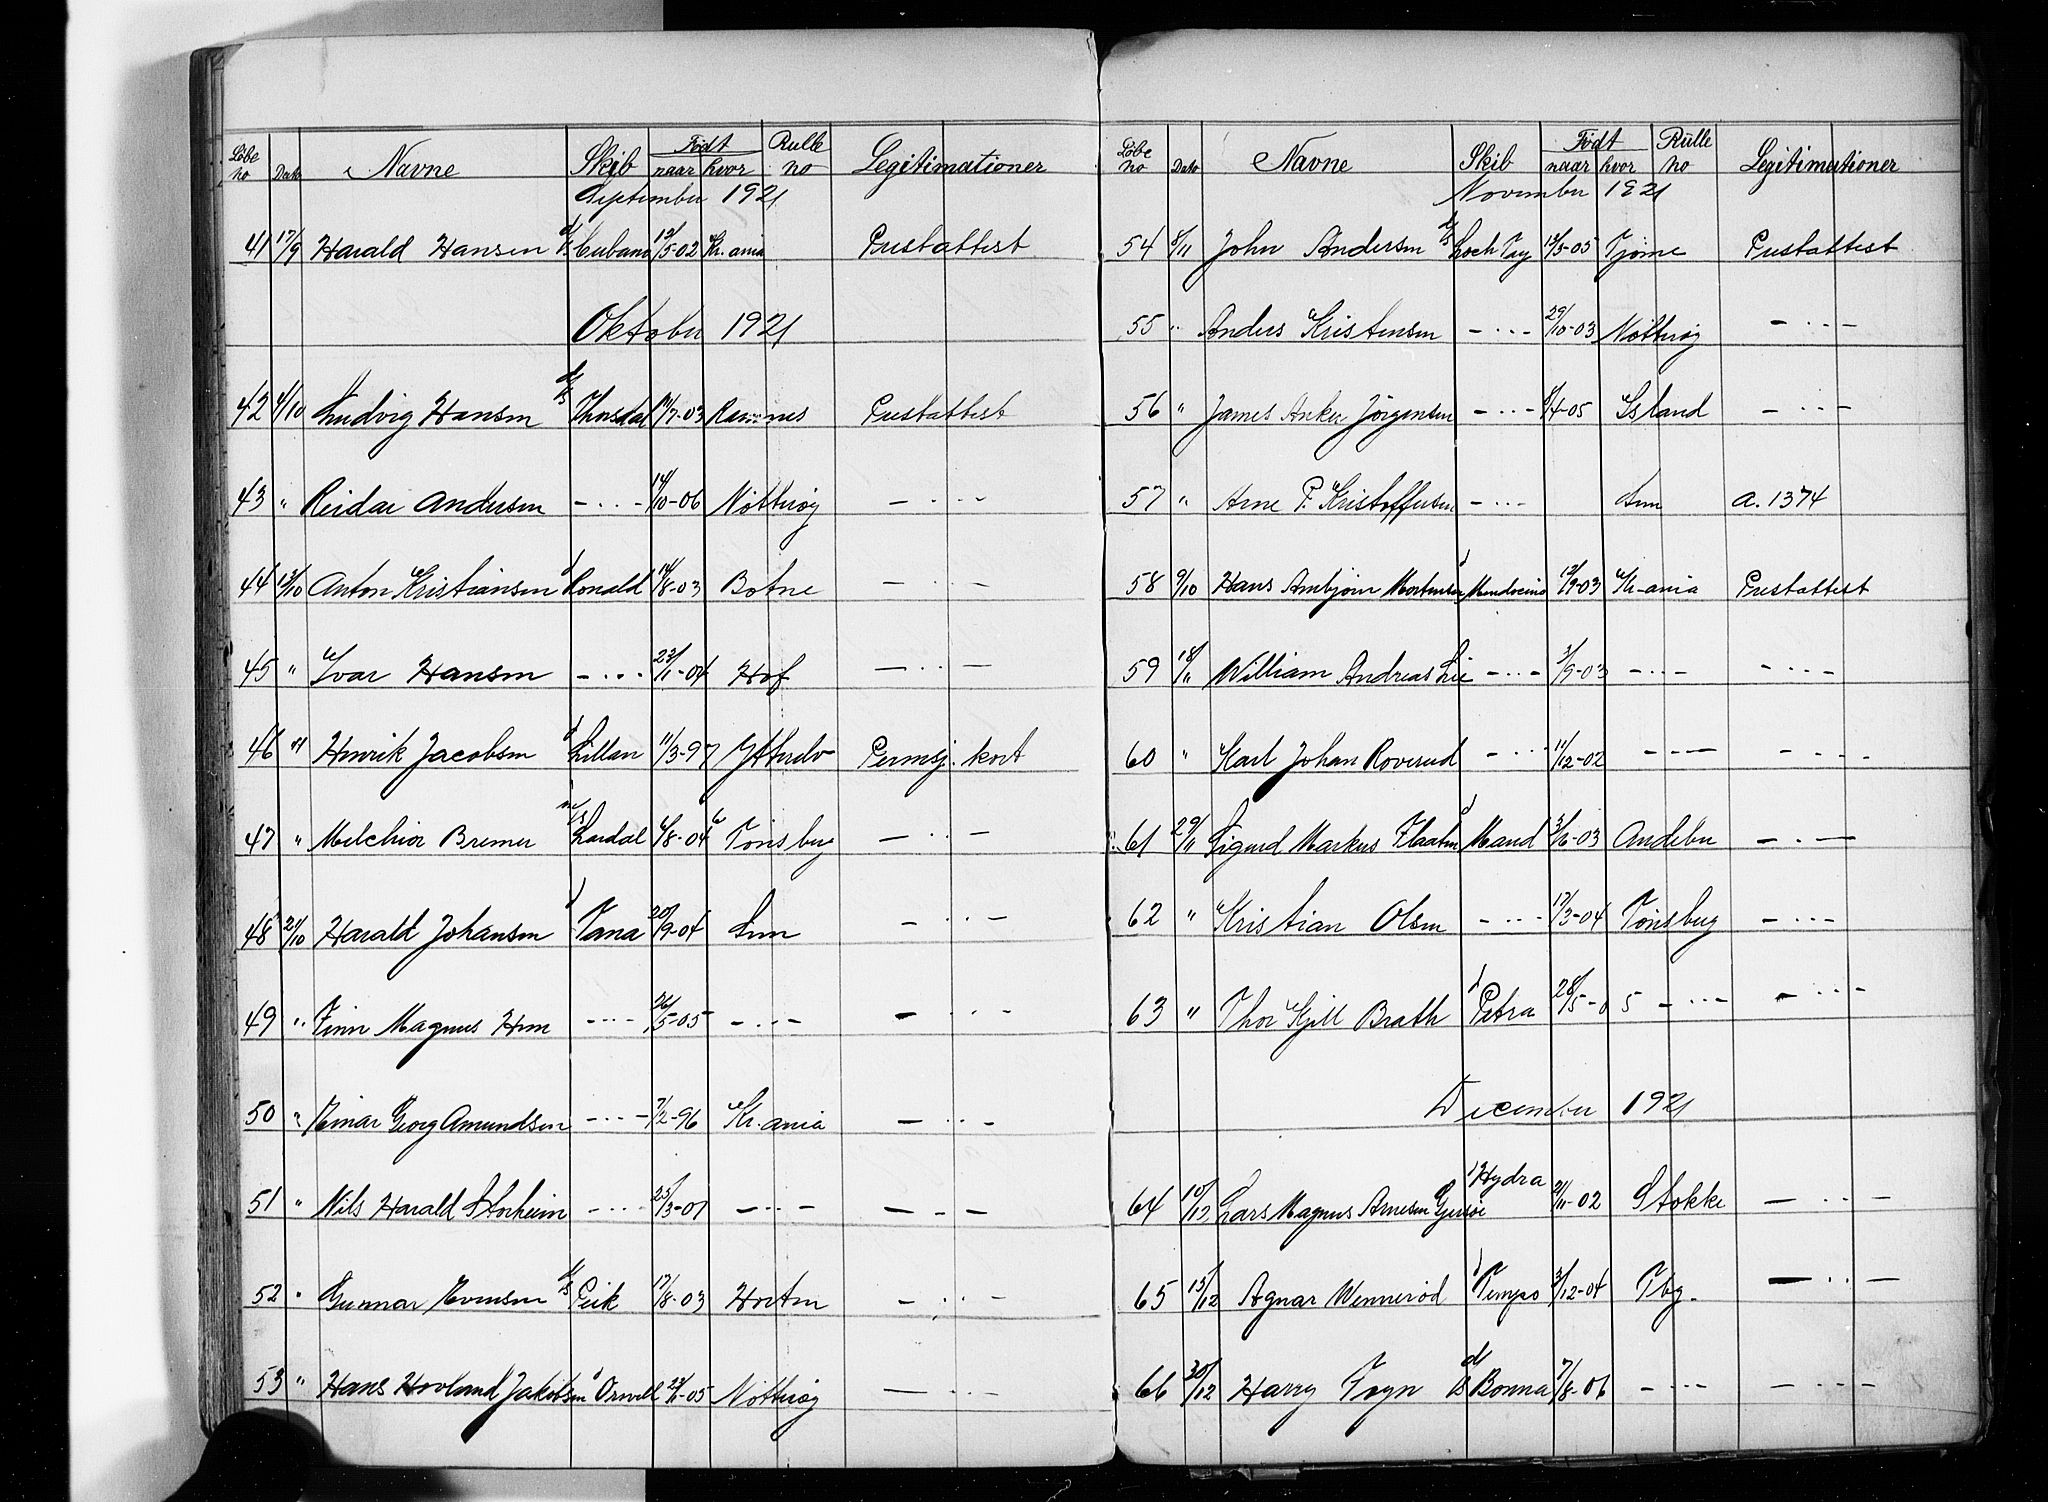 Løbe no Dato Navne Skib Født naar hvor Rulle no Legitimationer
September 1921
41 17/9 Harald Hansen d/s Cubano 12/5-02 Kr.ania Prestattest
Oktober 1921
42 4/10 Ludvig Hansen d/s Thorsdal 14/7-03 Ramnes Prestattest
43 " Reidar Andersen - · · · - 14/10-06 Nøtterøy - · · -
44 13/10 Anton Kristiansen d Ronald 14/8-03 Botne - · · -
45 " Ivar Hansen - · · · - 23/11-04 Hof - · · -
46 " Henrik Jacobsen d Lillan 11/3-97 Permsj. kort
47 " Melchior Bremer m/s Lardal 4/8-04 Tønsberg - · · -
48 21/10 Harald Johansen d Tana 20/9-04 Sem - · · -
49 " Finn Magnus Hem - · · · - 26/5-05 - · · - - · · -
50 " Einar Georg Amundsen - · · · - 7/2-96 Kr.ania - · · -
51 " Nils Harald Storheim - · · · - 25/3-01 - · · - - · · -
52 " Gunnar Evensen d/s Peik 17/8-03 Horten - · · -
53 " Hans Hovland Jakobsen d Orwell 22/11-05 Nøtterøy - · · -
Løbe no Dato Navne Skib Født naar hvor Rulle no Legitimationer
November 1921
54 8/11 John Andersen d/s Loch Tay 12/5-05 Tjøme Prestattest
55 " Anders Kristensen - · · · - 29/10-03 Nøtterøy - · · · -
56 " James Anker Jørgensen - · · · - 8/4-05 Island - · · · -
57 " Arne P. Kristoffersen - · · · - Sem A. 1374
58 9/10 Hans Arnbjørn Mortensen d Mendocino 12/9-03 Kr-ania Prestattest
59 18/11 William Andreas Lie - · · · - 3/9-03 - · · · - - · · · -
60 " Karl Johan Roverud - · · · - 11/12-02 - · · - - · · · -
61 29/11 Sigurd Markus Flaaten d Maud 3/6-03 Andebu - · -
62 " Kristian Olsen - · · · - 17/3-04 Tønsberg - · · · -
63 " Thor Kjell Brath d Petra 28/5-05 - · · · - - · · · -
December 1921
64 10/12 Lars Magnus Arnesen Gjersøe d Hydra 21/11-02 Stokke - · · -
65 15/12 Agnar Wennerød d Tempo 3/12-04 Tbg. - · · -
66 20/12 Harry Fogn d/s Bonna 7/8-06 - · · · - - · · · -